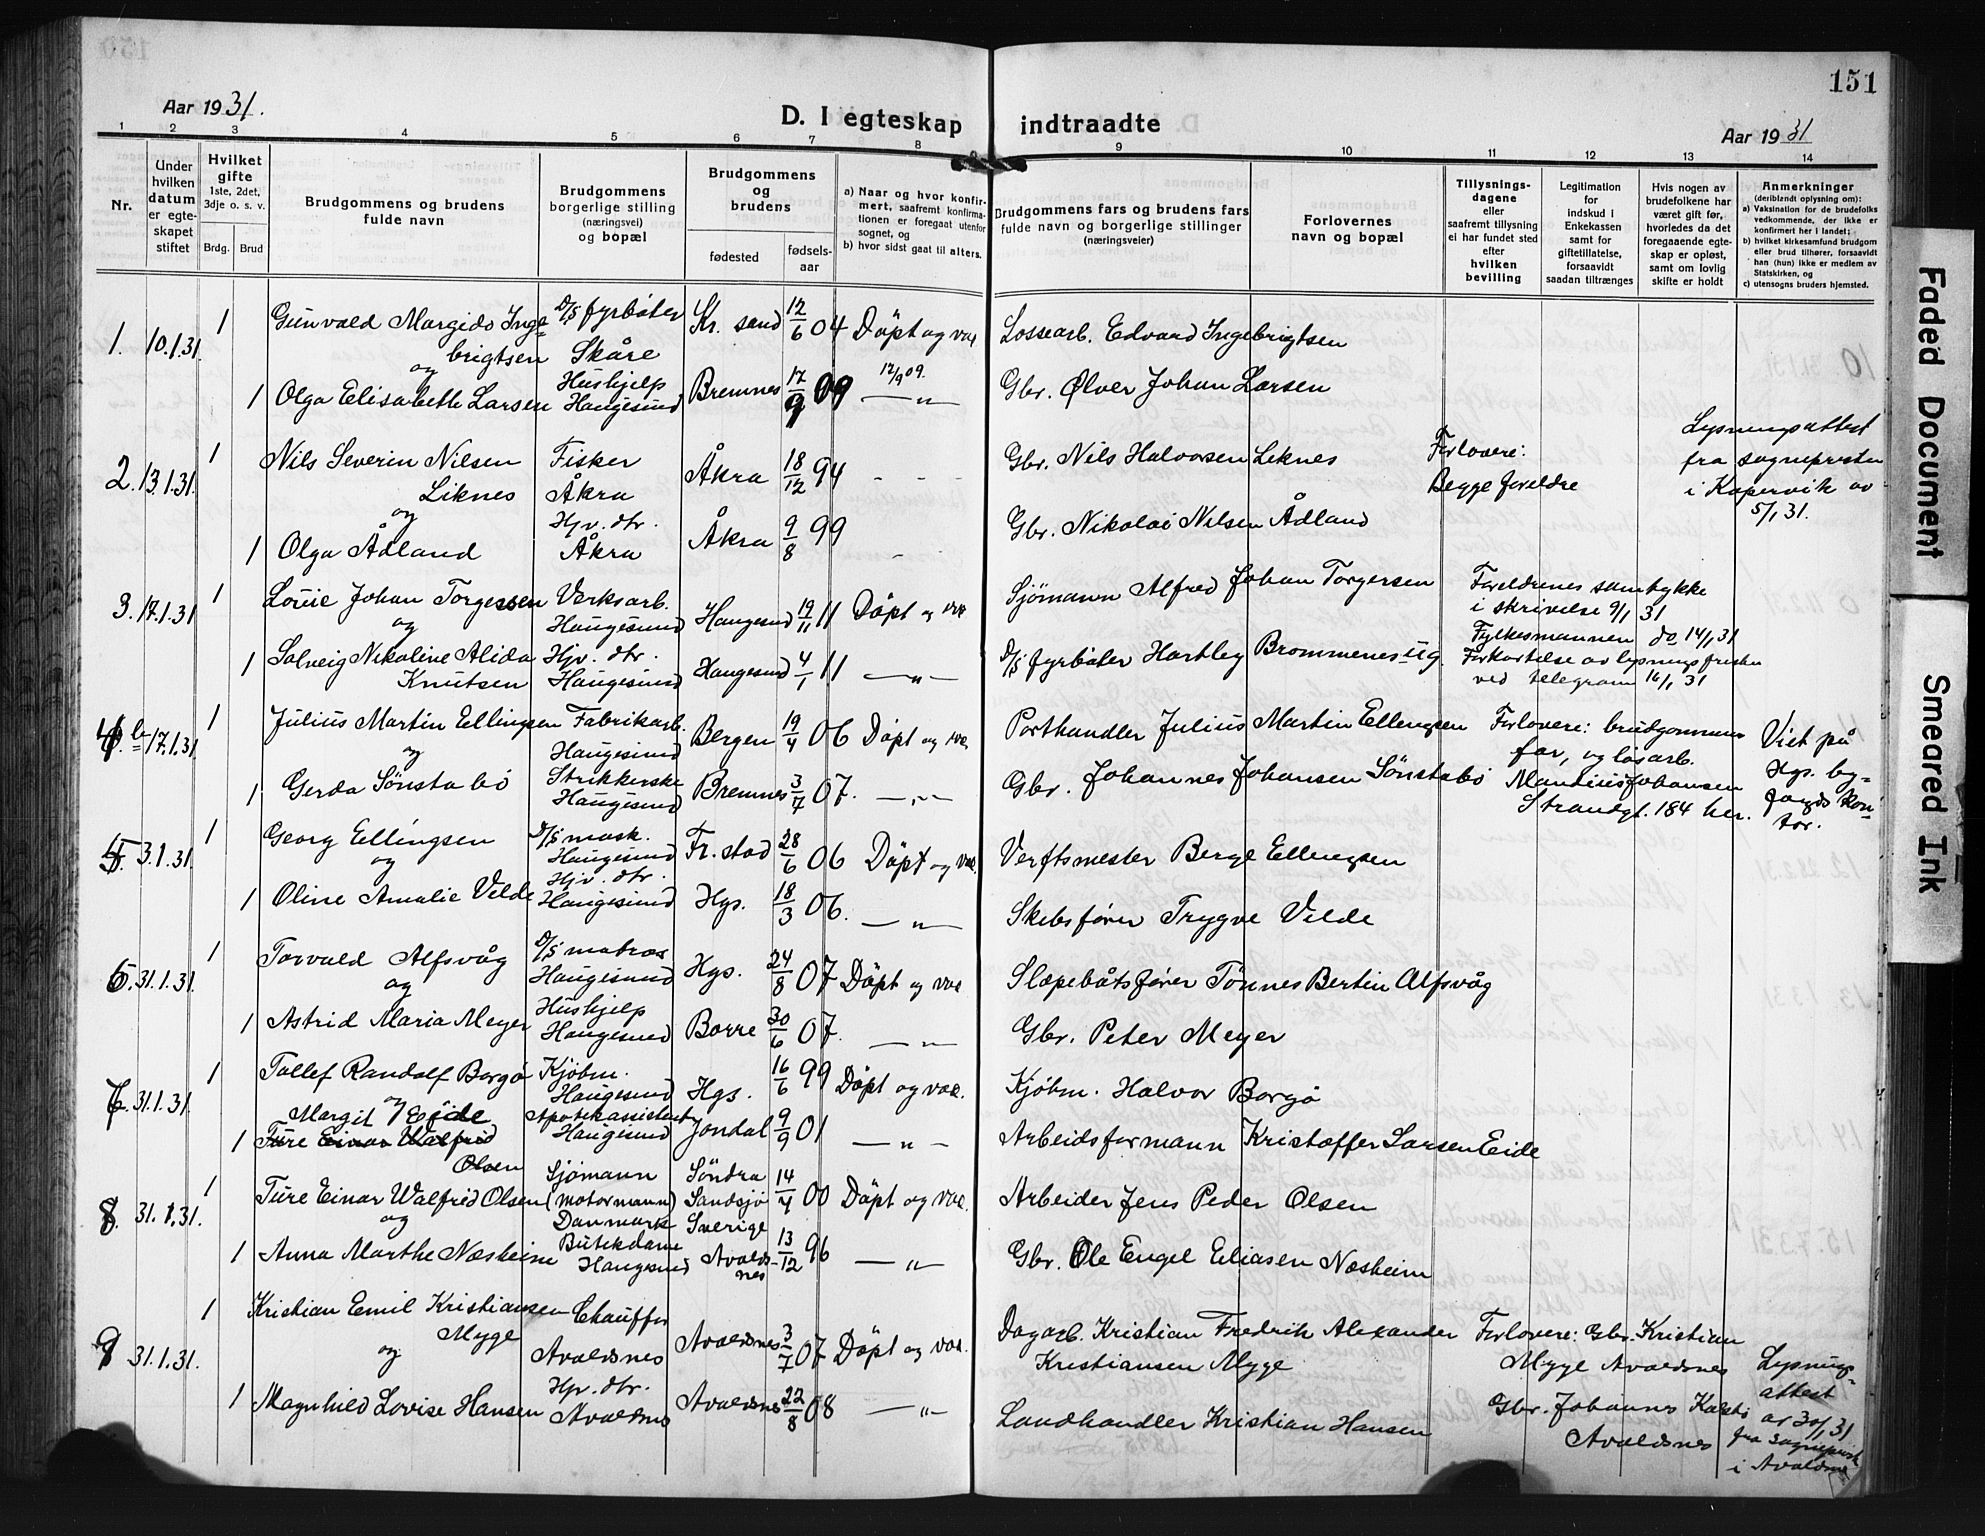 151
Aar 1931.
D. I egteskap indtraadte
Aar 1931
1 2 3 4 5 6 7 8 9 10 11 12 13 14
Nr.
Under hvilken datum er egteskapet stiftet
Hvilket gifte
1ste, 2det, 3dje o. s. v.
Brdg. Brud
Brudgommens og brudens fulde navn
Brudgommens borgerlige stilling (næringsvei) og bopæl
Brudgommens og brudens
fødested
fødsels-aar
a) Naar og hvor konfirmert, saafremt konfirmationen er foregaat utenfor sognet, og
b) hvor sidst gaat til alters.
Brudgommens fars og brudens fars fulde navn og borgerlige stillinger (næringsveier)
Forlovernes navn og bopæl
Tillysningsdagene eller saafremt tillysning ei har fundet sted efter hvilken bevilling
Legitimation for indskud i Enkekassen samt for giftetillatelse, forsaavidt saadan tiltrænges
Hvis nogen av brudefolkene har været gift før, hvorledes da det foregaaende egteskap er opløst, samt om lovlig skifte er holdt
Anmerkninger (deriblandt oplysning om):
a) Vaksination for de brudefolks vedkommende, der ikke er konfirmert her i landet;
b) hvilket kirkesamfund brudgom eller brud tilhører, forsaavidt han (hun) ikke er medlem av Statskirken, og
c) utensogns bruders hjemsted.
1. 10.1.31. 1 Gunvald Margido Inge-brigtsen D/S fyrbøter Skåre Kr. sand 12/6 04 Döpt og vac Lossearb. Edvard Ingebrigtsen
og
1 Olga Elisabeth Larsen Hushjelp Haugesund Bremnes 17/9 09 12/9 09. — " — Gbr. Ølver Johan Larsen
2. 13.1.31. 1 Nils Severin Nilsen Liknes Fisker Åkra Åkra 18/12 94 - - - Gbr. Nils Halvorsen Leknes Forlovere: Begge foreldre Lysningsattest fra sognepresten i Kopervik av 5/1 31.
og
1 Olga Ådland Hjv. dtr. Åkra Åkra 9/8 99 - - Gbr. Nikolai Nilsen Ådland
3. 17.1.31 1 Louie Johan Torgersen Verksarb. Haugesund Haugesund 19/11 11 Döpt og vac Sjömann Alfred Johan Torgersen Foreldrenes samtykke i skrivelse 9/1 31
og
1 Solveig Nikoline Alida Knutsen Hjv. dtr. Haugesund Haugesund 4/1 11 — " — D/S fyrbøter Hartley Brommenes u g. Fylkesmannen do 14/1 31 Forkortelse av lysningsfristen ved telegram 16/1 31
4. 17.1.31 1 Julius Martin Ellingsen Fabrikarb. Haugesund Bergen 19/4 06 Döpt og vac. Porthandler Julius Martin Ellengsen Forlovere: brudgommens far, og løsarb. Viet på Hgs. by-fogds kontor.
og
1 Gerda Sönstabö Strikkerske Haugesund Bremnes 3/7 07. — " — Gbr. Johannes Johansen Sönstabö Johansen Strandgt. 184 her.
5. 31.1.31. 1 Georg Ellingsen D/S mask. Haugesund Fr. stad 28/6 06 Döpt og vac. Verftsmester Berge Ellengsen
og
1 Oline Amalie Velde Hjv. dtr. Haugesund Hgs. 18/3 06. — " — Skibsfører Trygve Velde
6. 31.1.31. 1 Torvald Alfsvåg D/S matros Haugesund Hgs. 24/8 07 Döpt og vac Slæpebåtsfører Tönnes Bertin Alfsvåg
og
1 Astrid Maria Meyer Hushjelp Haugesund Borre 30/6 07. — " — Gbr. Peter Meyer
7. 31.1.31. 1 Tollef Randolf Borgö Kjöbm. Haugesund Hgs. 16/6 99 Döpt og vac. Kjöbm. Halvor Borgö
og Margit Eide
1 Ture Einar Walfrid Olsen Apotekassistent Haugesund Jondal 9/9 01 — " — Arbeidsformann Kristoffer Larsen Eide
8. 31.1.31. 1 Ture Einar Walfrid Olsen Sjömann (motormann) Danmark Söndra Sandsjö Sverige 14/4 00 Döpt og vac. Arbeider Jens Peder Olsen
og
1 Anna Marthe Næsheim Butikdame Haugesund Avaldsnes 13/12 96 — " — Gbr. Ole Engel Eliasen Næsheim
9 31.1.31. 1 Kristian Emil Kristiansen Mygge Chauffør Avaldsnes Avaldsnes 3/7 07 Döpt og vac. Dagarb. Kristian Fredrik Alexander Kristiansen Mygge Forlovere: Gbr. Kristian Mygge Avaldsnes Lysnings-attest av 30/1 31 fra sogneprest i Avaldsnes
og
1 Magnhild Lovise Hansen Hjv. dtr. Avaldsnes Avaldsnes 22/8 08 — " — Landhandler Kristian Hansen Gbr. Johannes Avaldsnes
Faded Document
Smeared Ink